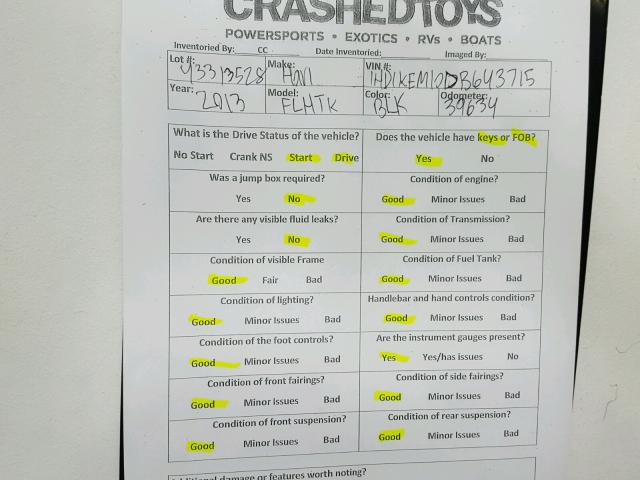 CRASHEDTOYS
POWERSPORTS • EXOTICS • RVs • BOATS
Inventoried By: CC Date Inventoried: Imaged By:
Lot #: 43313528 Make: HAVI VIN #: 1HD1KEM10DB643715
Year: 2013 Model: FLHTK Color: BLK Odometer: 39634
What is the Drive Status of the vehicle? Does the vehicle have keys or FOB?
No Start Crank NS Start Drive Yes No
Was a jump box required? Condition of engine?
Yes No Good Minor Issues Bad
Are there any visible fluid leaks? Condition of Transmission?
Yes No Good Minor Issues Bad
Condition of visible Frame Condition of Fuel Tank?
Good Fair Bad Good Minor Issues Bad
Condition of lighting? Handlebar and hand controls condition?
Good Minor Issues Bad Good Minor Issues Bad
Condition of the foot controls? Are the instrument gauges present?
Good Minor Issues Bad Yes Yes/has issues No
Condition of front fairings? Condition of side fairings?
Good Minor Issues Bad Good Minor Issues Bad
Condition of front suspension? Condition of rear suspension?
Good Minor Issues Bad Good Minor Issues Bad
Additional damage or features worth noting?